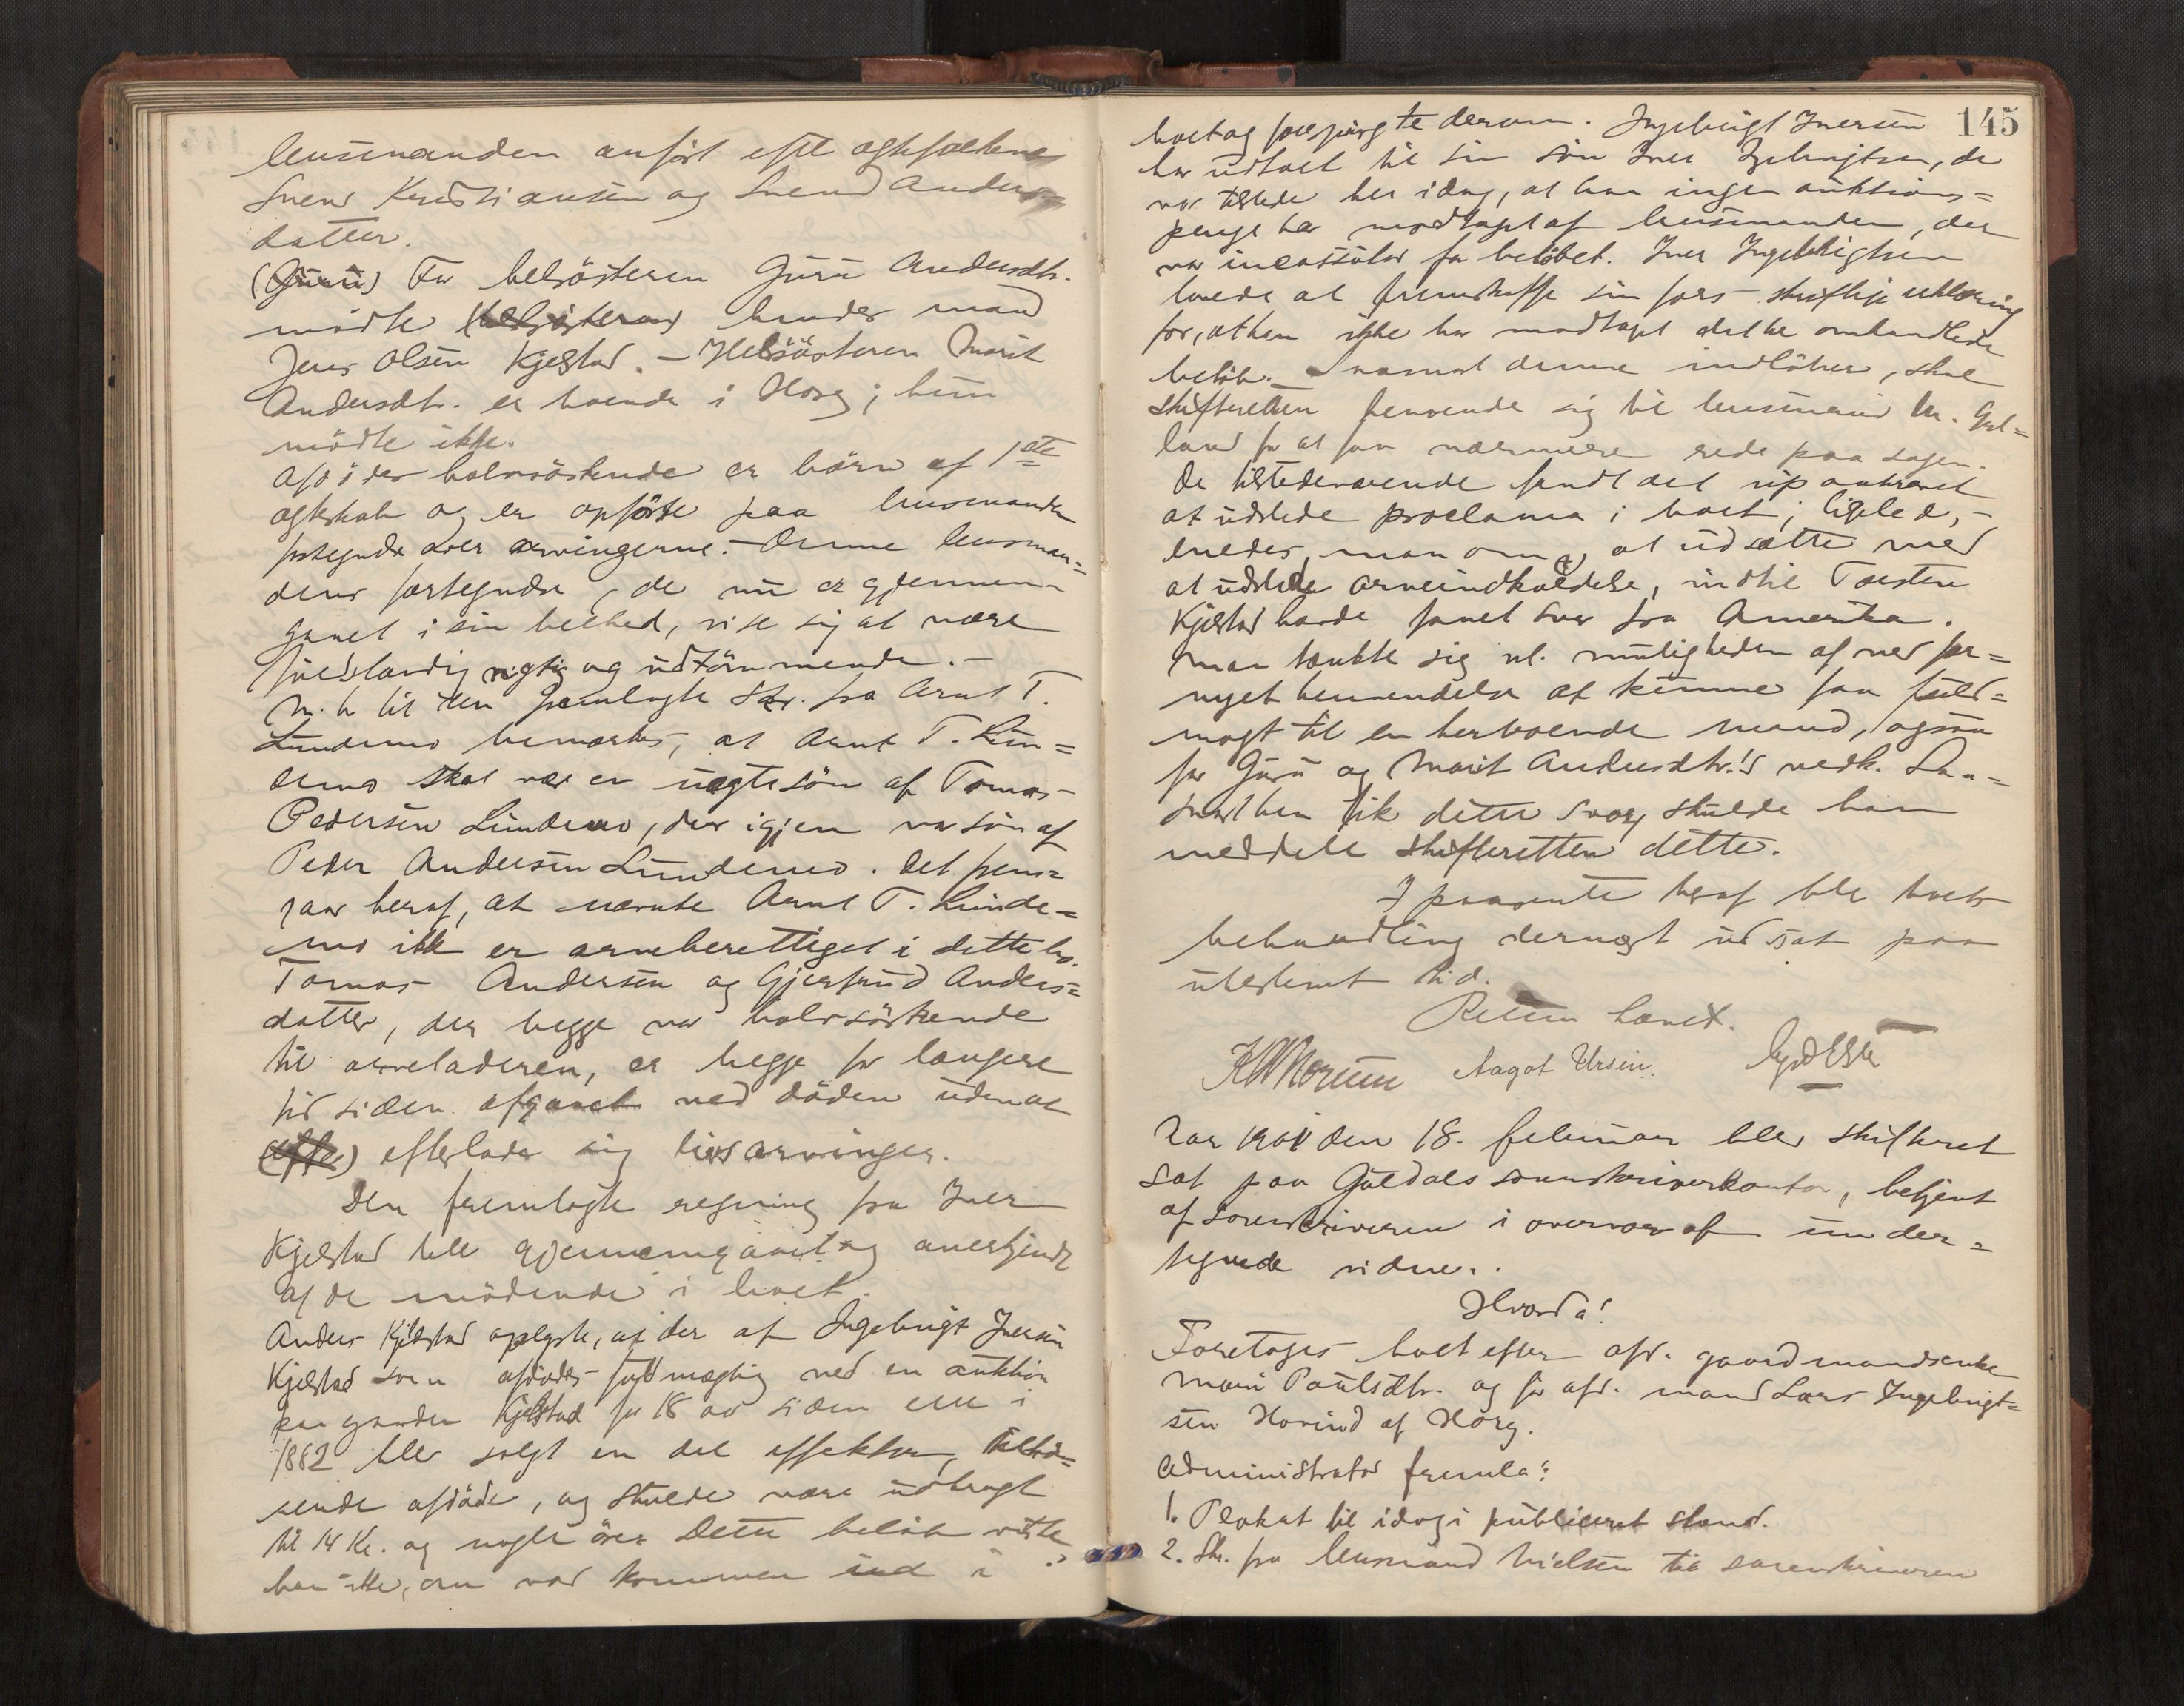 lensmanden anført efter ægtefællene
Svend Kristiansen og Svend Anders=
datter.
(Guru) For helsösteren Guru Andersdtr.
mödte (helsösteren) hendes mand
Jens Olsen Kjelstad. – Helsösteren Marit
Andersdtr. er boende i Horg; hun
mödte ikke.
Afdödes halvsöskende er börn af 1ste
ægteskab og er opförte paa lensmandens
fortegnelse over arvingerne. – Denne lensman=
dens fortegnelse, de nu er gjennem-
gaaet i sin helhed, viste sig at være
fuldstændig rigtig og udtömmende. –
M. h. til den fremlagte Skr. fra Arnt T.
Lundemo bemærkes, at Arnt T. Lun=
demo skal være en uægte sön af Tomas
Pedersen Lundemo, der igjen var sön af
Peder Andersen Lundemo. Det frem=
gaar heraf, at nævnte Arnt T. Lunde=
mo ikke er arveberettiget i dette bo.
Tomas Andersen og Gjertrud Anders=
datter, der begge var halvsöskende
til arveladeren, er begge for længere
tid siden afgaaet ved döden uden at
(efter) efterlade sig livsarvinger.
Den fremlagte regning fra Iver
Kjelstad ble gjennemgaaet og anerkjendt
af de mödende i boet.
Anders Kjelstad oplyste, at der af Ingebrigt Iversen
Kjelstad som afdödes fuldmægtig ved en auktion
paa gaarden Kjelstad for 18 aar siden eller i
1882 blev solgt en del effekter, tilhö=
rende afdöde, og skulde være udbragt
til 14 Kr. og nogle öre. Dette belöb vidste
han ikke, om var kommen ind i
145
boet og forespurgte derom. Ingebrigt Iversen
har udtalt til sin sön Iver Ingebrigtsen, der
var tilstede her idag, at han ingen auktions=
penge har modtaget af lensmanden, der
var incassator for belöbet. Iver Ingebrigtsen
lovede at fremskaffe sin fars skriftlige erklæring
for, at han ikke har modtaget dette omhandlede
belöb. Saasnart denne indlöber, skal
skifteretten henvende sig til lensmand M. Gyl=
land for at faa nærmere rede paa sagen.
De tilstedeværende fandt det upaakrævet
at udstede proclama i boet; ligeled, –
enedes man om at udsætte med
at udstede arveindkaldelse, indtil Torsten
Kjelstad havde faaet svar fra Amerika.
Man tænkte sig nl. muligheden af ved for=
nyet henvendelse at kunne faa fuld=
magt til en herboende mand, ogsaa
for Guru og Marit Andersdtr.'s vedk. Saa=
snart han fik dette svar, skulde han
meddele skifteretten dette.
I paavente heraf ble boets
behandling dernæst udsat paa
ubestemt tid.
Retten hævet.
Aagot Ursin.
Aar 1901 den 18. februar blev skifteret
sat paa Guldals sorenskriverkontor, betjent
af sorenskriveren i overvær af under=
tegnede vidner.
Hvorda:
Foretages boet efter afd. gaardmandsenke
Mari Paulsdtr. og för afd. mand Lars Ingebrigt=
sen Hovind af Horg.
Administrator fremla:
1. Plakat til idag i publiceret stand.
2. Skr. fra lensmand Nielsen til sorenskriveren